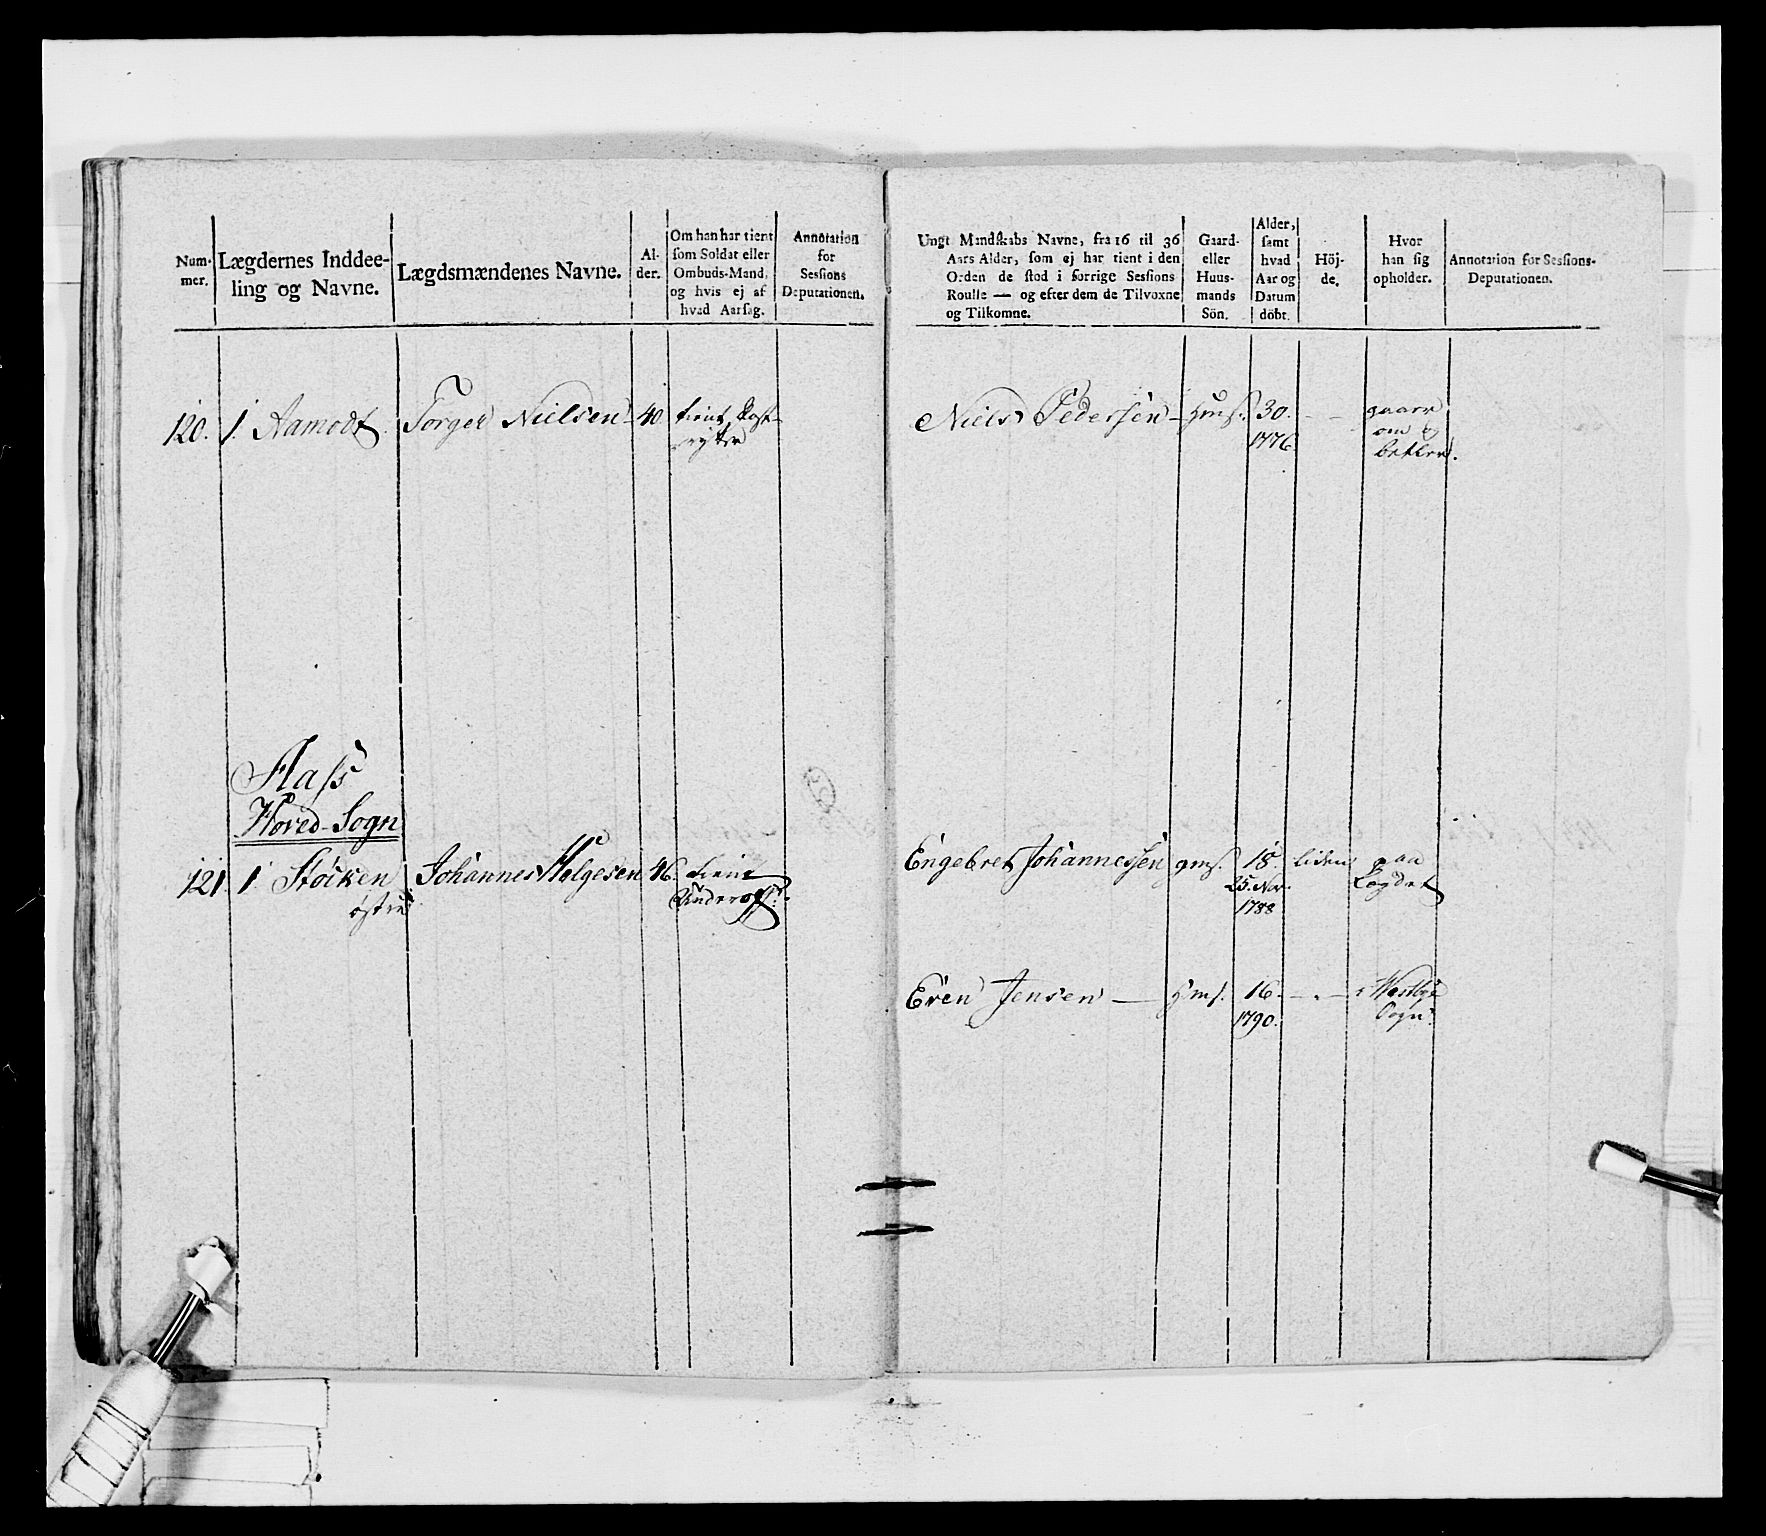 Num-
mer.
Lægdernes Inddee-
ling og Navne.
Lægdsmændenes Navne.
Al-
der.
Om han har tient
som Soldat eller
Ombuds-Mand,
og hvis ej af
hvad Aarsag.
Annotation
for
Sessions
Deputationen.
120. 1. Aamodt Torger Nielsen 40
tient
Aass
Hoved-Sogn
121. 1. Stöcken Johannes Helgesen 46. tient
östre Underoff:
Ungt Mandskabs Navne, fra 16 til 36
Aars Alder, som ej har tient i den
Orden de stod i forrige Sessions
Roulle — og efter dem de Tilvoxne
og Tilkomne.
Gaard-
eller
Huus-
mands
Sön.
Alder,
samt
hvad
Aar og
Datum
döbt.
Höj-
de.
Hvor
han sig
opholder.
Annotation for Sessions-
Deputationen.
Niels Pedersen – Hms. 30. – – gaaer
1776. om og
betler.
Engebret Johannessen gms. 18 liden paa
25. Nov. Lægdet
1788
Even Jensen — Hms. 16. – „ – i Westbye
1790. Sogn.